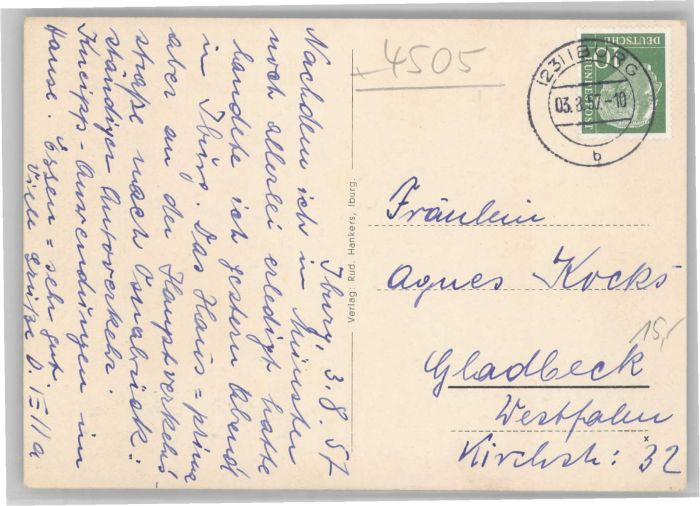 Iburg, 3.8.57
Nachdem ich in Münster
noch allerlei erledigt hatte
landete ich gestern Abend
in Iburg. Das Haus = prima
aber an der Hauptverkehrs-
straße nach Osnabrück =
ständiger Autoverkehr.
Kneipp-Anwendungen im
Hause. Essen = sehr gut.
Viele Grüße D.
Verlag: Rud. Hankers, Iburg.
4505
(23) IBURG
03.8.57.-10
b
DEUTSCHE
BUNDESPOST
10
Fräulein
Agnes Kocks
15,-
Gladbeck
Westfalen
Kirchstr: 32